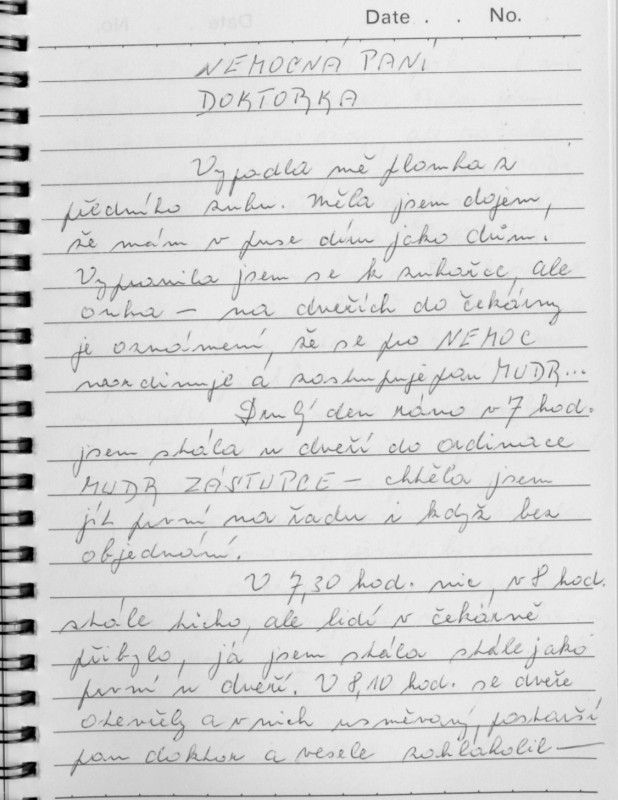 Date . . No.
NEMOCNÁ PANÍ
DOKTORKA
Vypadla mě plomba z
předního zubu. Měla jsem dojem,
že mám v puse dím jako dům.
Vypravila jsem se k zubařce, ale
ouha – na dveřích do čekárny
je oznámení, že se pro NEMOC
neordinuje a zastupuje pan MUDR...
Druhý den ráno v 7 hod.
jsem stála u dveří do ordinace
MUDR ZÁSTUPCE – chtěla jsem
jít první na řadu i když bez
objednání.
V 7,30 hod. nic, v 8 hod.
stále ticho, ale lidí v čekárně
přibylo, já jsem stála stále jako
první u dveří. V 8,10 hod. se dveře
otevřely a v nich usměvavý, postarší
pan doktor a vesele zahlaholil –